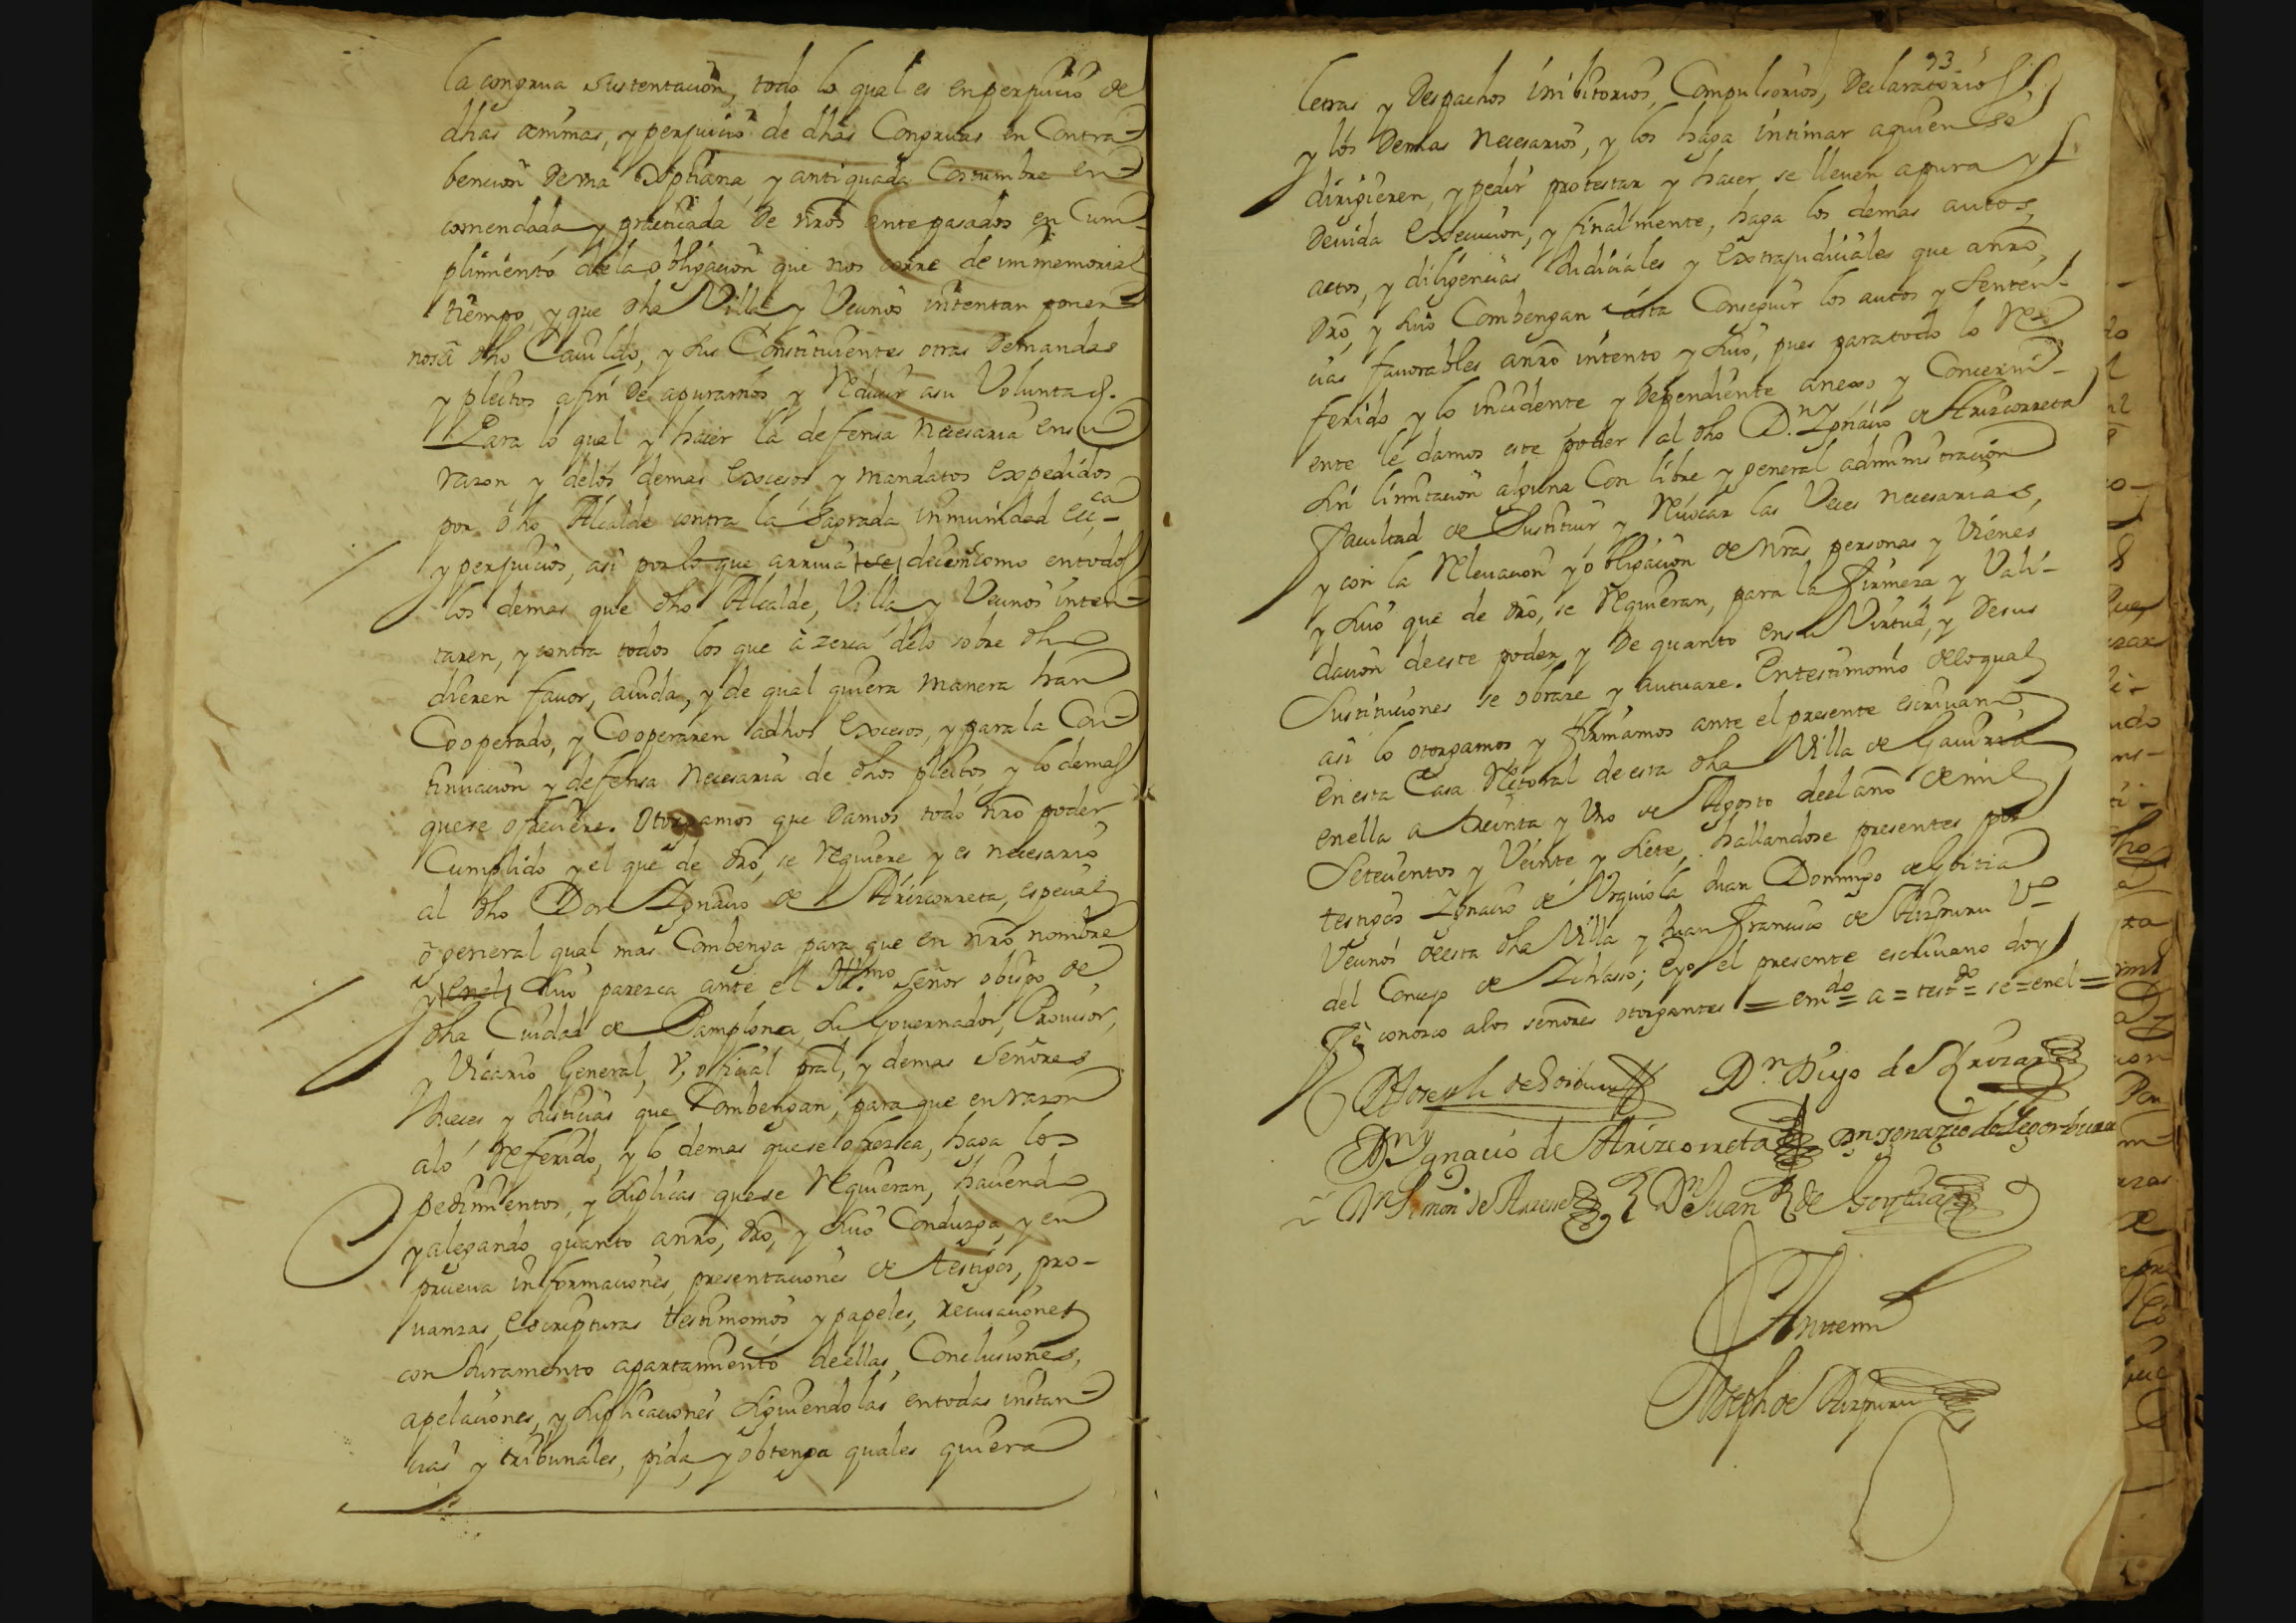 la congrua sustentacion, todo lo qual es en perjuicio de
dhas animas, y perjuicio de dhas Congruas en Contra-
bencion de mã Xptiana y antiquada Costumbre en-
comendada y practicada de nr̃os antepasados en Cum-
plimiento dela obligacion que nos corre de immemorial
tiempo, y que dha Villa y Vecinos intentan poner-
nos â dho Cauildo, y sus Constituientes otras demandas
y pleitos a fin de apurarnos y Reducir asu Voluntad.
Para lo qual y hacer la defensa necesaria en su
razon y delos demas excesos y mandatos expedidos
por dho Alcalde contra la Sagrada inmunidad ecc.ca
y perjuicios, asi por lo que arriua se decen como entodos
los demas que dho Alcalde, Villa y Vecinos inten-
taren, y contra todos los que azerca delo sobre dho
dieren fauor, aiuda, y de qual quiera manera han
Cooperado, y Cooperaren adhos excesos, y para la Con-
tinuacion y defensa necesaria de dhos pleitos, y lo demas
que se ofreciere. Otorgamos que Damos todo nr̃o poder
Cumplido y el que de dr̃o, se requiere y es necesario
al dho Don Ignacio de Arizcorreta, especial
o general qual mas Combenga para que en nr̃o nombre
y enel suio parezca ante el Ill.mo Señor obispo de
dha Ciudad de Pamplona, su Gouernador, Prouisor,
y Vicario General, y, oficial pral, y demas Señores
Jueces y Justicias que Combengan, para que en razon
alo Referido, y lo demas que se ofrezca, haga los
pedimentos, y suplicas que se Requieran, haciendo
y alegando quanto anr̃o, dr̃o, y suio Conduzga, y en
prueua informaciones, presentaciones de testigos, pro-
uanzas, escripturas testimonios y papeles, recusaciones
con Juramento apartamiento deellas, Conclusiones,
apelaciones, y suplicaciones siguiendolas entodas instan-
cias y tribunales, pida, y obtenga quales quiera
93
letras y Despachos inibitorios, Compulsorios, Declaratorios
y los Demas necesarios, y los haga intimar aquien se
dirigieren, y pedir protestar y hacer se lleuen apura y
deuida execucion, y finalmente, haga los demas autos,
actos, y diligencias Judiciales y extrajudiciales que anr̃o,
dr̃o, y suio Combengan asta Conseguir los autos y senten-
cias fauorables anr̃o intento y suio, pues paratodo lo Re-
ferido y lo incidente y dependiente anexo, y Concerni-
ente le damos este poder al dho D.n Ygnacio de Arizcorreta
sin limitacion alguna Con libre y general administracion
facultad de Sustituir, y Reuocar las Veces necesarias,
y con la Releuacion y obligacion de nr̃as personas y Vienes
y suio que de dr̃o, se Requieran, para la firmeza y Vali-
dacion deeste poder, y De quanto en su Virtud, y Desus
Sustituciones se obrare y autuare. En testimonio delo qual
asi lo otorgamos y firmamos ante el presente escriuano
en esta Casa Rectoral de esta dha Villa de Gauiria
enella a treinta y Uno de Agosto deel año de mil
Setecientos y Veinte y siete, hallandose presentes por
testigos Ignacio de Urquiola Juan Domingo de Goitia
Vecinos deesta dha Villa y Juan Francisco de Aizpuru Vº
del Concejo de Ichasso; e yo el presente escriuano doy
fe conozco alos señores otorgantes = em.do = a = test.do = se = enel =
D.n Joseph de D.n Diego de
D.n Ygnacio de Arizcorreta D.n Ygnazio de Legorburu
D.n Simon de D.n Juan de Goytia
Antemi
Joseph de Aizpuru